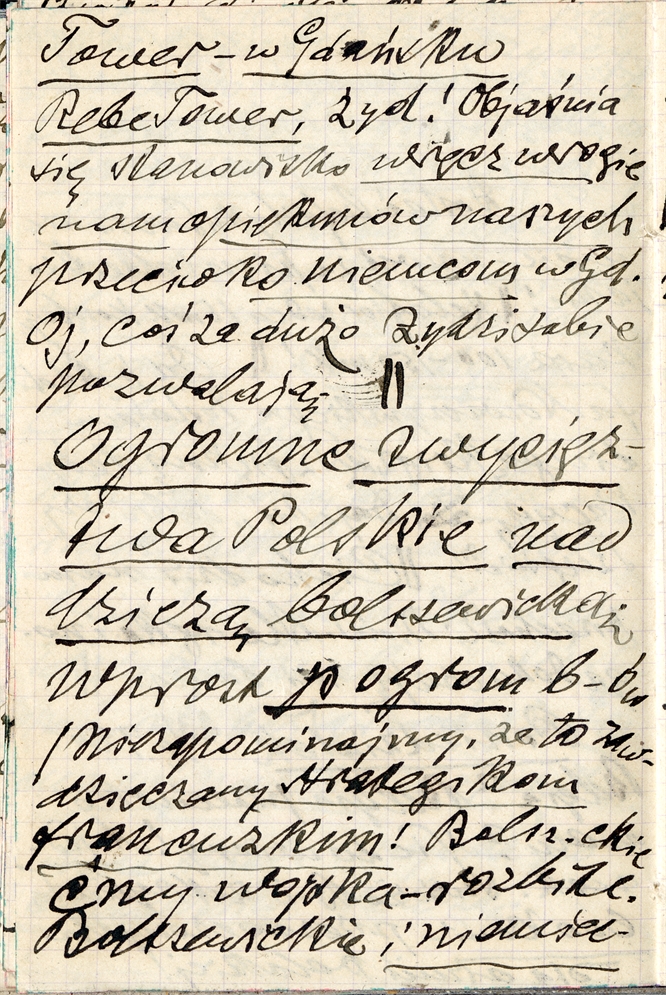 Tower – w Gdańsku
Rebe Tower, żyd! Objaśnia
się stanowisko wręcz wrogie
nam opiekunów naszych
przeciwko niemcom w Gd.
Oj, coś za dużo Żydzi sobie
pozwalają ||
Ogromne zwycięz-
twa Polskie nad
dziczą bolszewicką
wprost pogrom b-ów
/Niezapominajmy, że to zaw-
dzięczamy strategikom
francuzkim! Bolsz.ckie
ćmy wojska – rozbite.
Bolszewickie, niemiec-